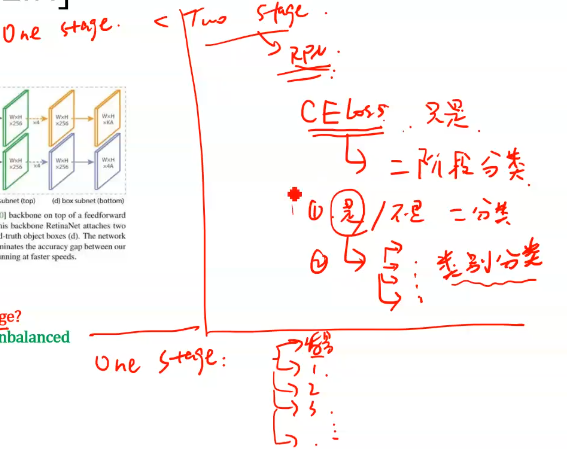 One stage. < Two stage.
RPN.
CE loss. 只是
二阶段分类.
W×H ×256 ×4 W×H ×256 W×H ×KA
W×H ×256 ×4 W×H ×256 W×H ×4A
① 是/不是 二分类
subnet (top) (d) box subnet (bottom)
] backbone on top of a feedforward
his backbone RetinaNet attaches two
d-truth object boxes (d). The network
minates the accuracy gap between our
nning at faster speeds.
② 类别分类
ge?
nbalanced
One stage:
背景
1.
2
3.